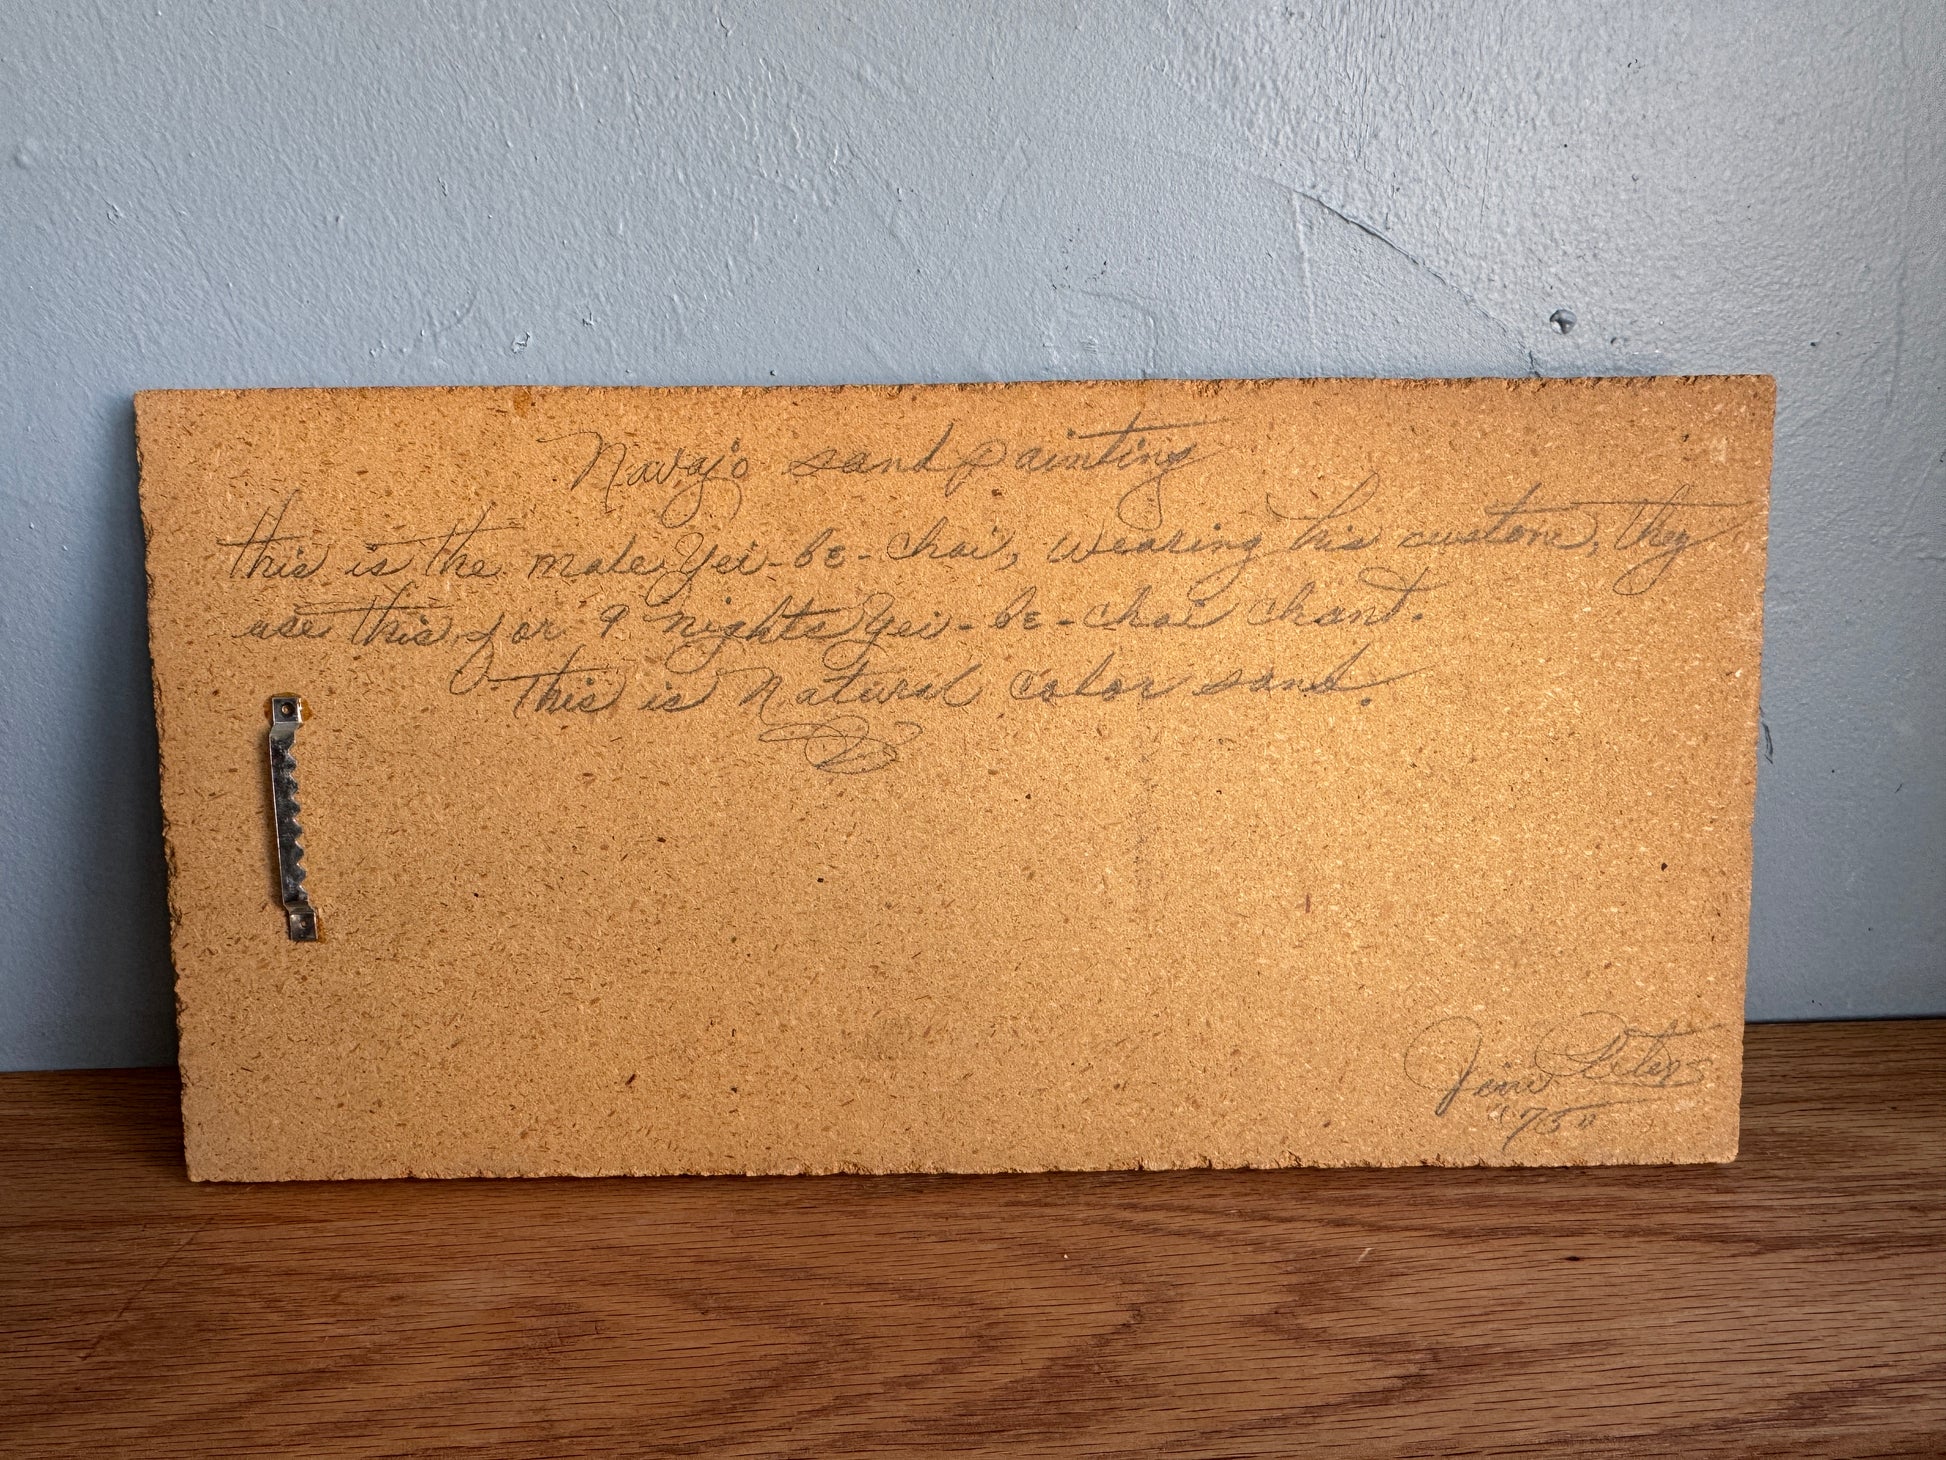 Navajo sand painting
this is the male Yei-be-chai, wearing his custom, they
use this for 9 nights Yei-be-chai chant.
this is natural color sand.
Peters
"75"